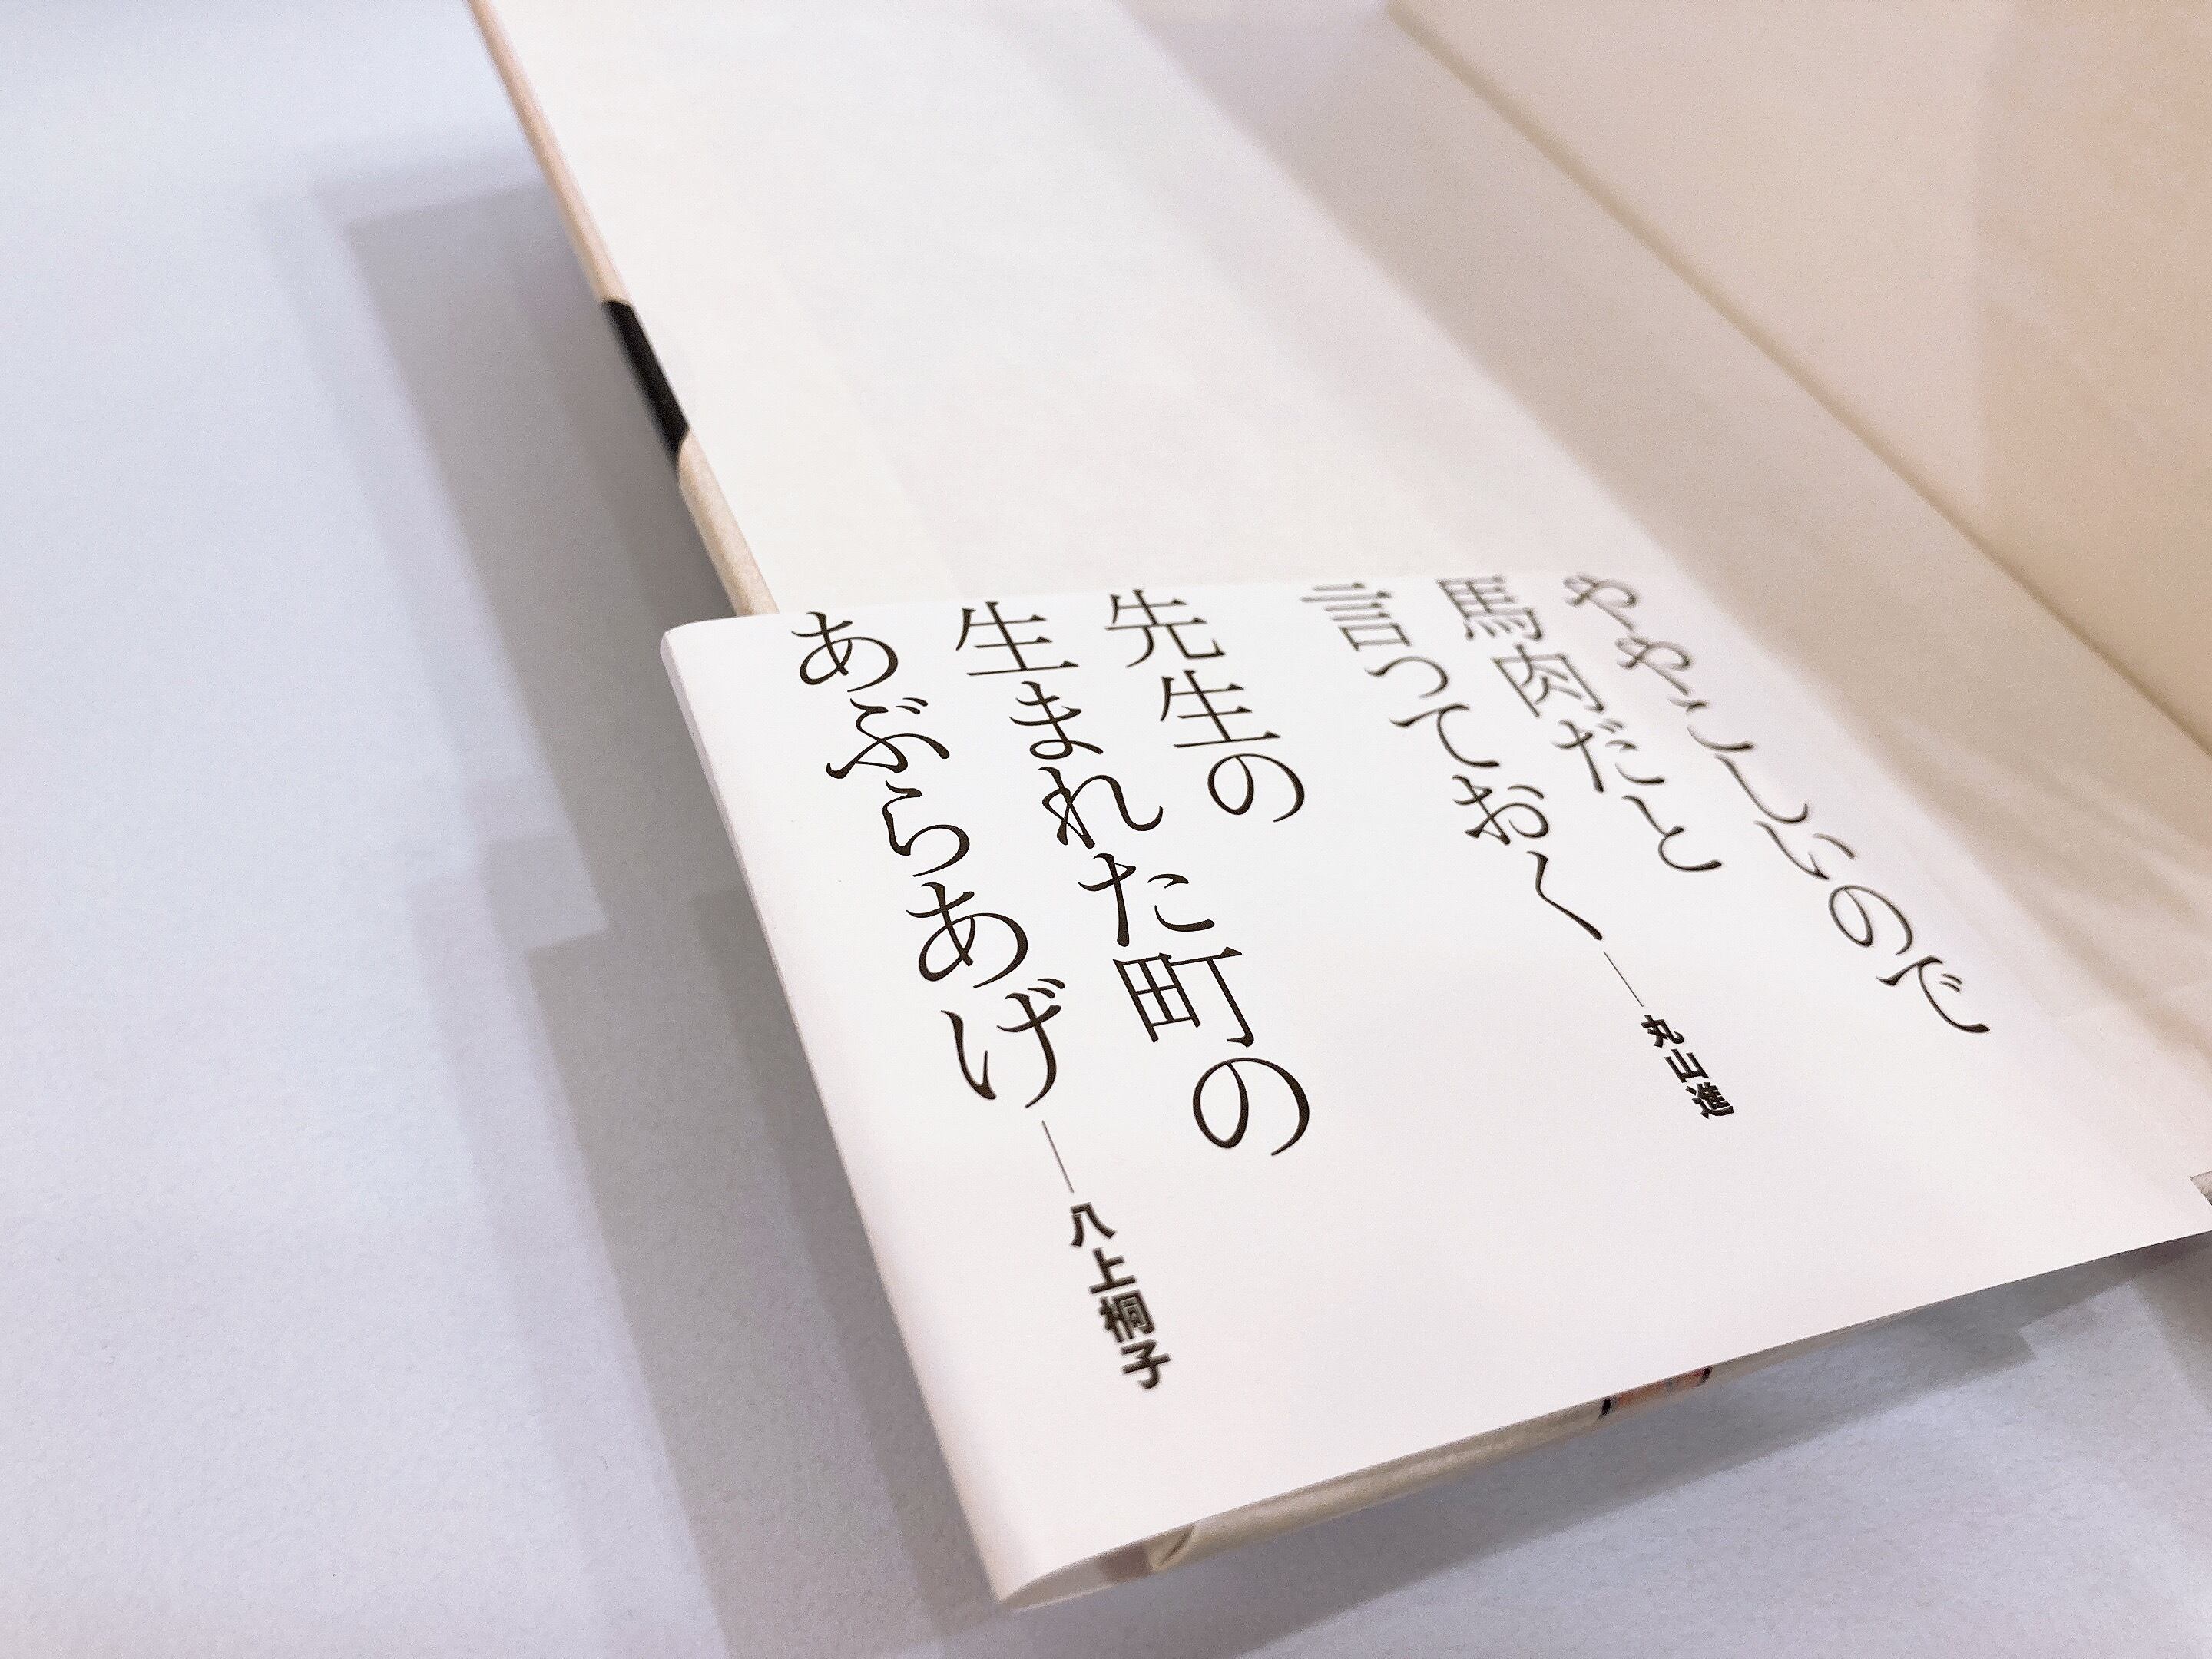 ややこしいので
馬肉だと
言っておく——丸山進
先生の
生まれた町の
あぶらあげ——八上桐子